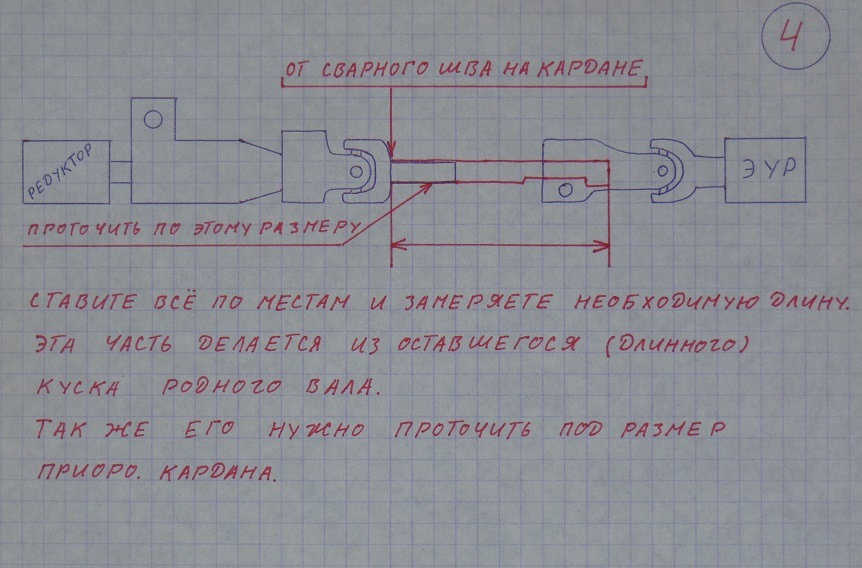 4
ОТ СВАРНОГО ШВА НА КАРДАНЕ
РЕДУКТОР
ЭУР
ПРОТОЧИТЬ ПО ЭТОМУ РАЗМЕРУ
СТАВИТЕ ВСЁ ПО МЕСТАМ И ЗАМЕРЯЕТЕ НЕОБХОДИМУЮ ДЛИНУ.
ЭТА ЧАСТЬ ДЕЛАЕТСЯ ИЗ ОСТАВШЕГОСЯ (ДЛИННОГО)
КУСКА РОДНОГО ВАЛА.
ТАК ЖЕ ЕГО НУЖНО ПРОТОЧИТЬ ПОД РАЗМЕР
ПРИОРО. КАРДАНА.